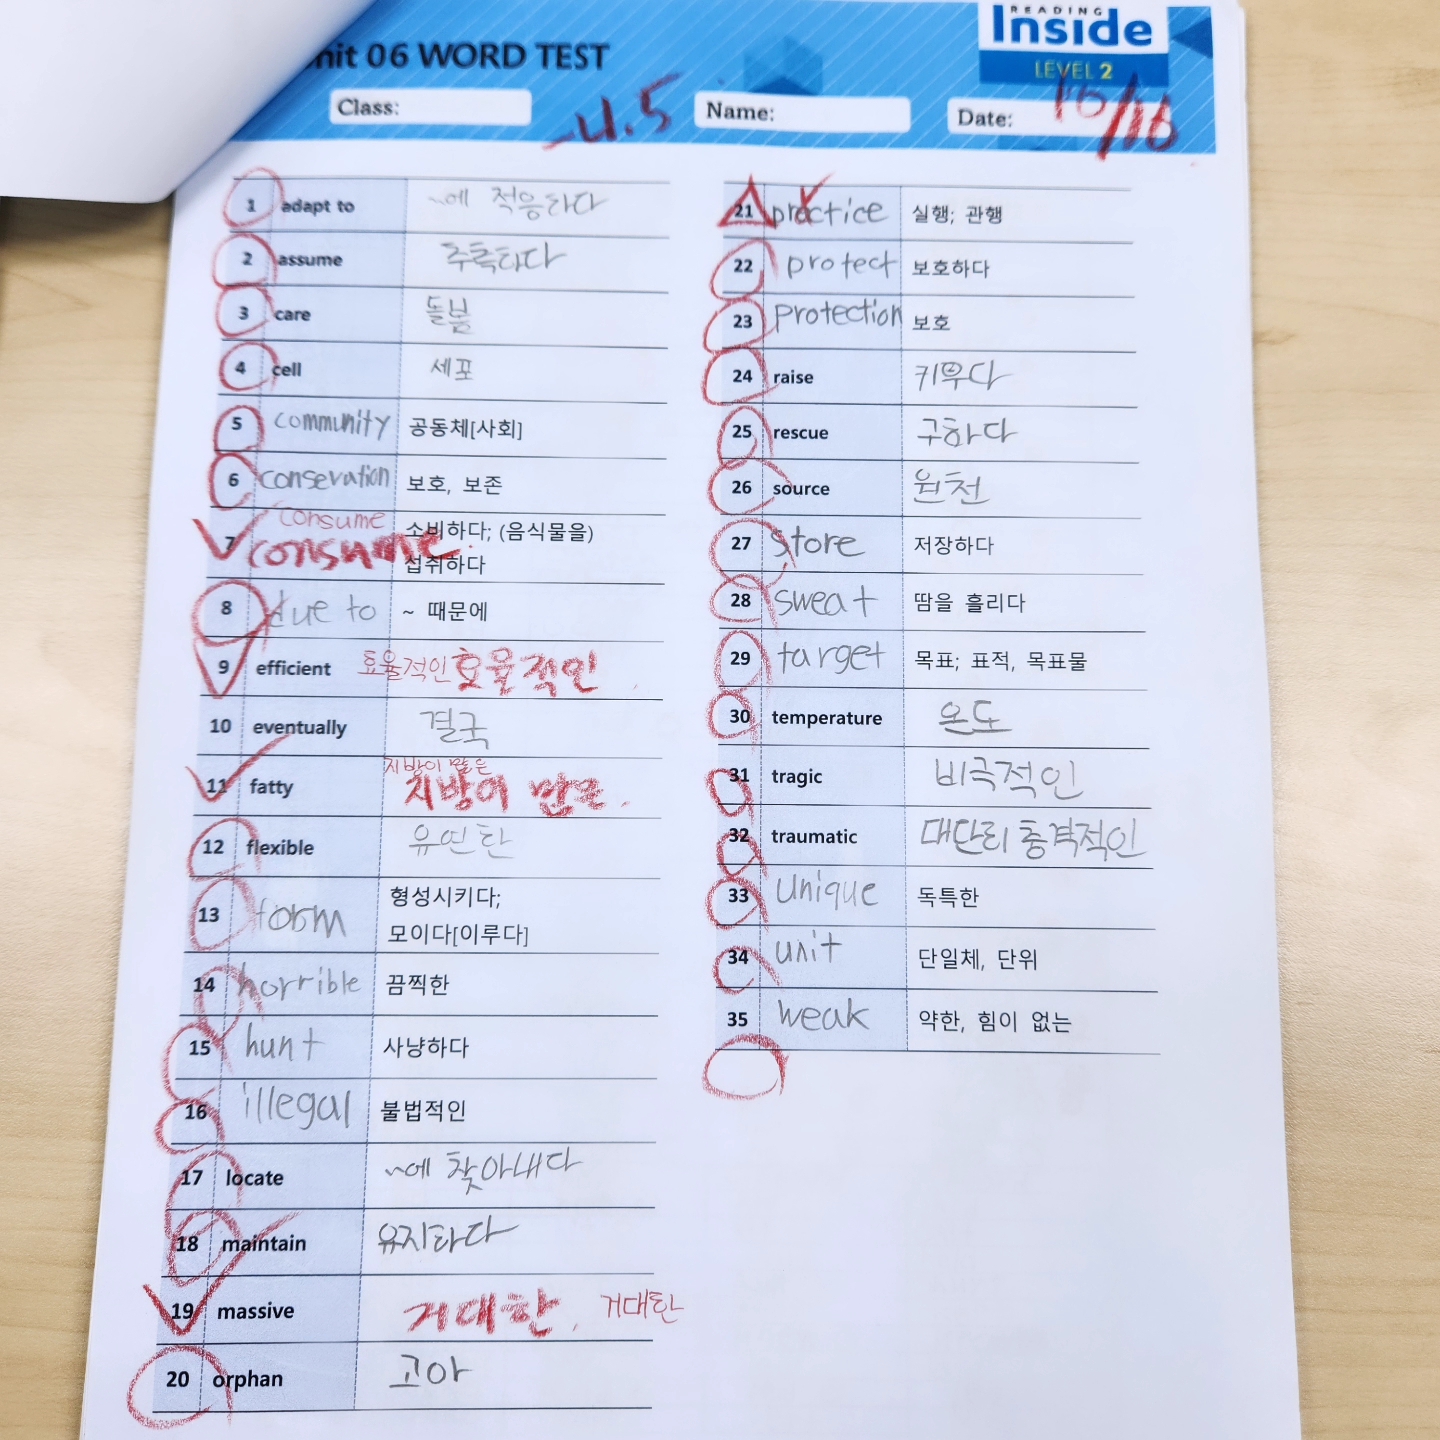 nit 06 WORD TEST
READING
Inside
LEVEL 2
Class:
-4.5
Name:
Date:
16/16
1 adapt to ~에 적응하다
2 assume 추측하다
3 care 돌봄
4 cell 세포
5 community 공동체[사회]
6 consevation 보호, 보존
consume
7 consume. 소비하다; (음식물을)
섭취하다
8 due to ~ 때문에
9 efficient 효율적인 효율적인
10 eventually 결국
지방이 많은
11 fatty 지방이 많은.
12 flexible 유연한
13 form 형성시키다;
모이다[이루다]
14 horrible 끔찍한
15 hunt 사냥하다
16 illegal 불법적인
17 locate ~에 찾아내다
18 maintain 유지하다
19 massive 거대한. 거대한
20 orphan 고아
21 practice 실행; 관행
22 protect 보호하다
23 protection 보호
24 raise 키우다
25 rescue 구하다
26 source 원천
27 store 저장하다
28 sweat 땀을 흘리다
29 target 목표; 표적, 목표물
30 temperature 온도
31 tragic 비극적인
32 traumatic 대단히 충격적인
33 unique 독특한
34 unit 단일체, 단위
35 weak 약한, 힘이 없는